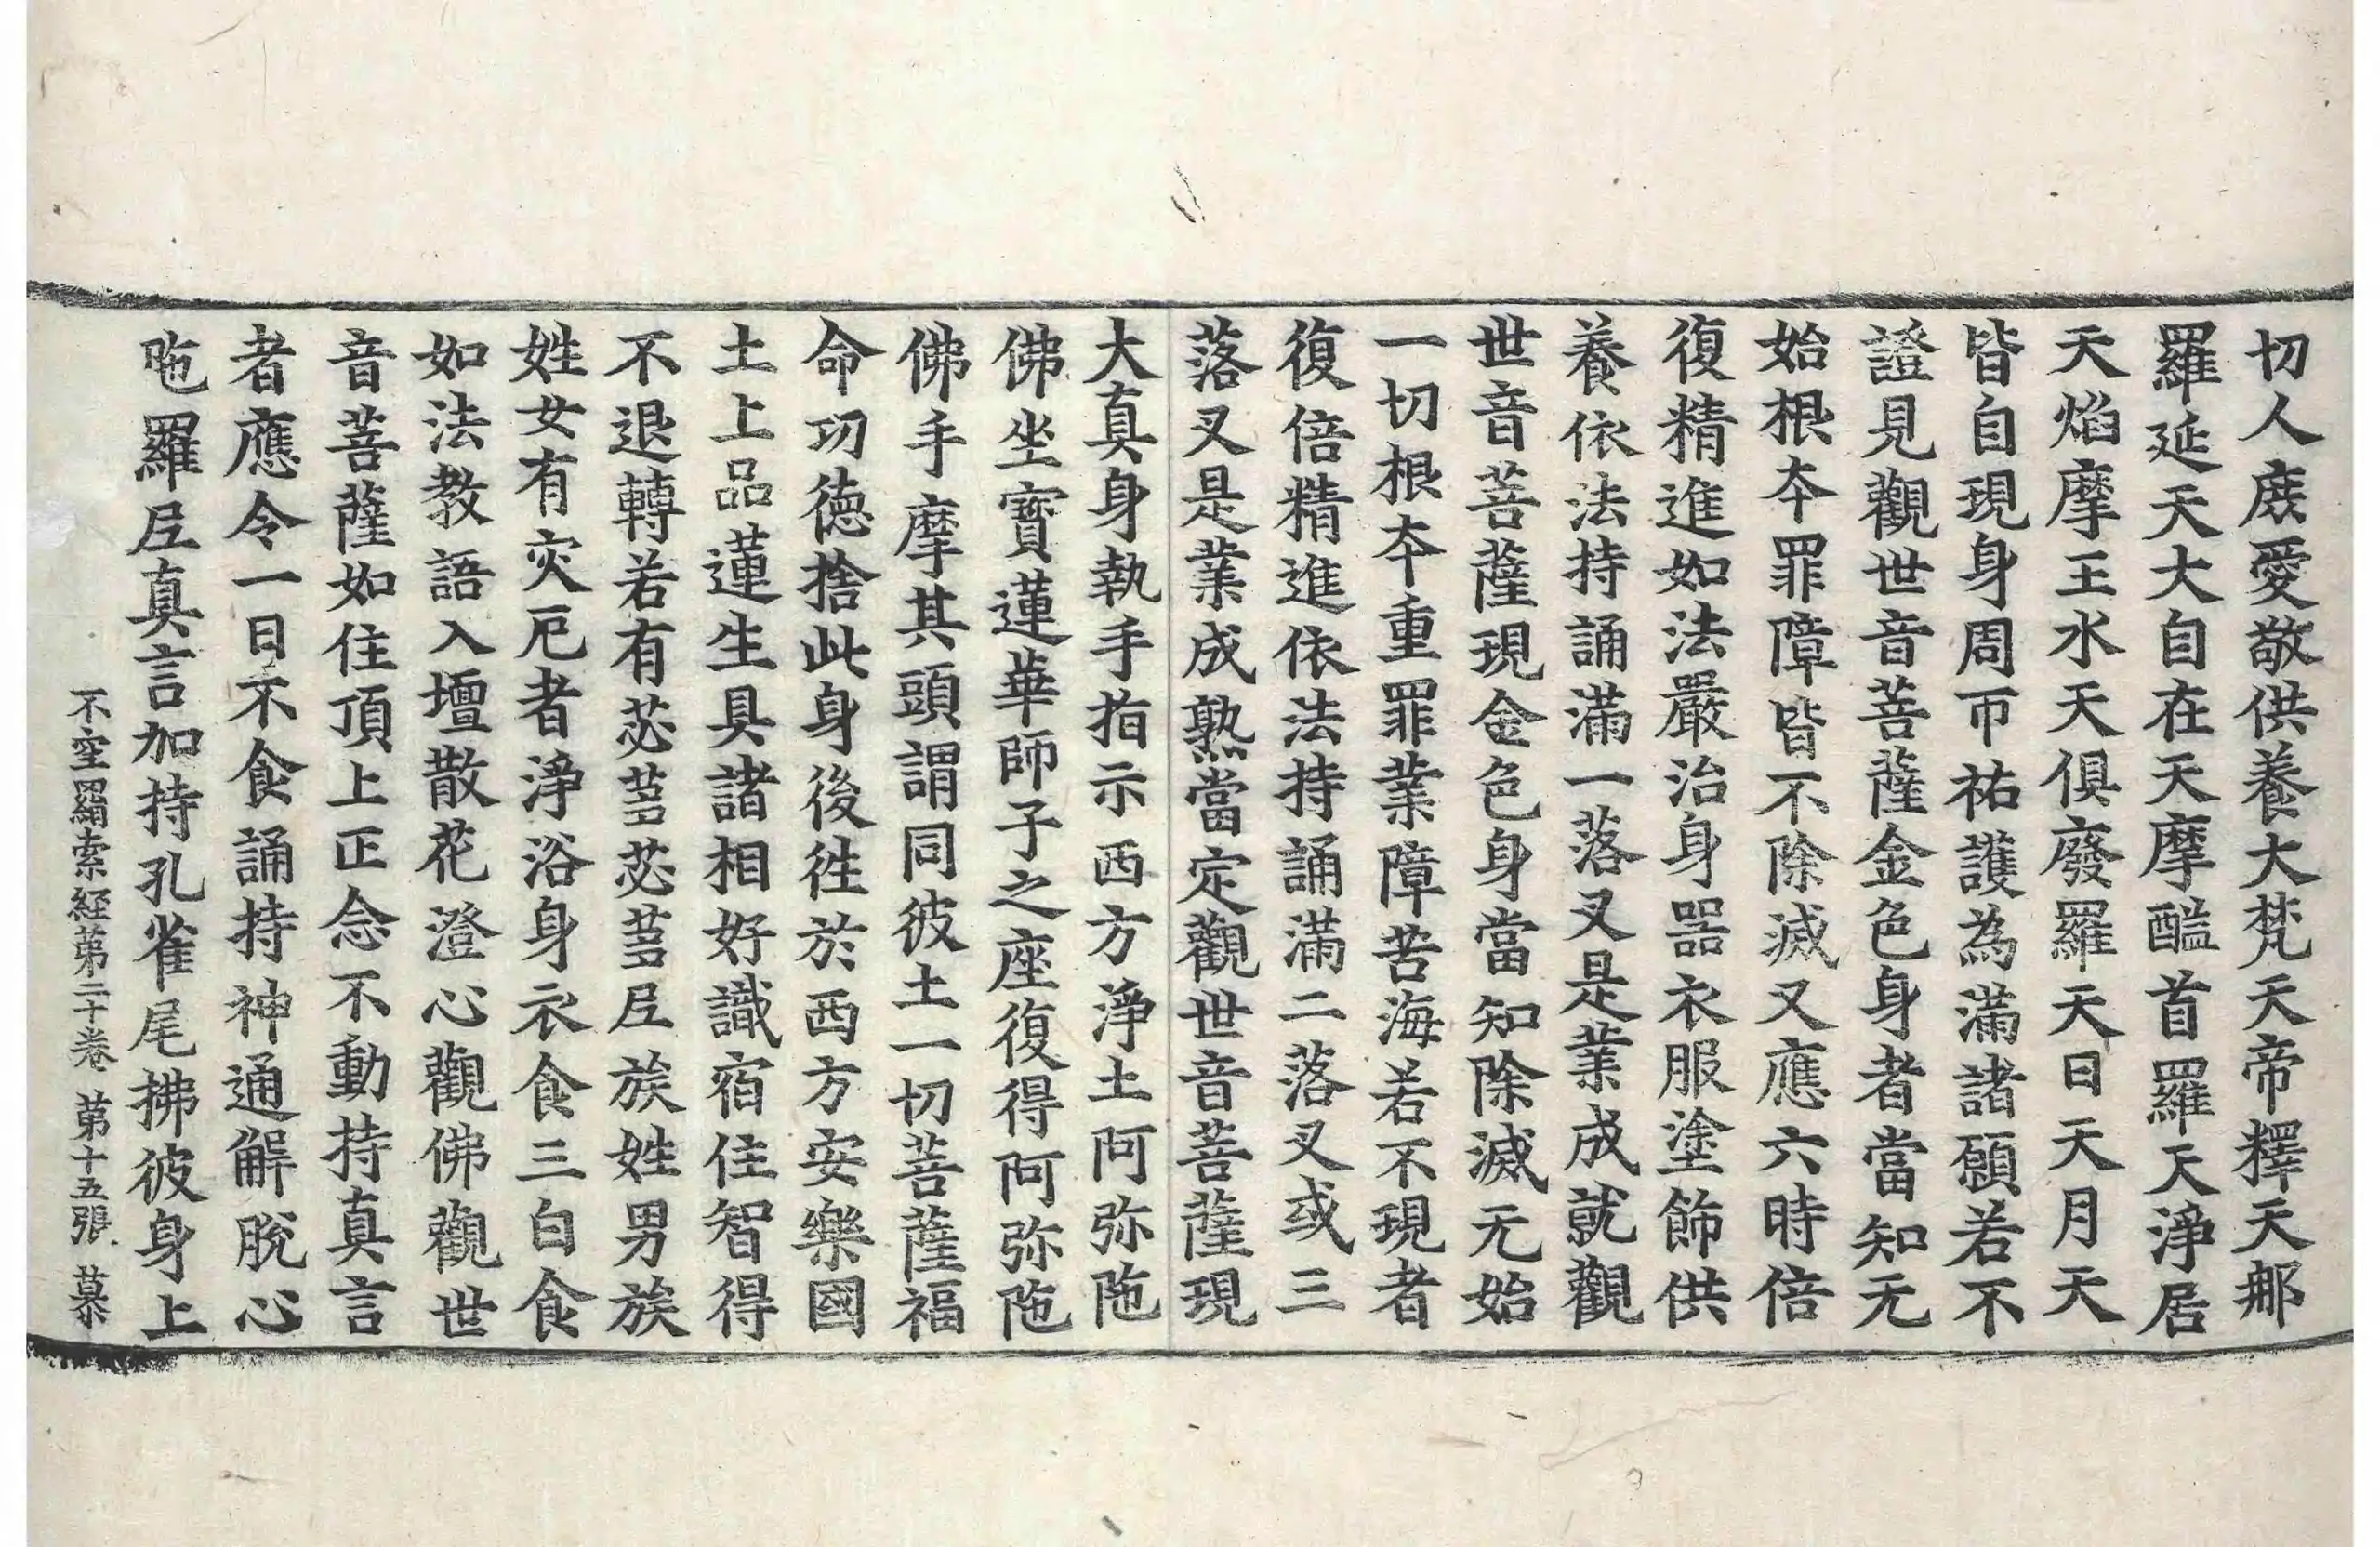 切人庻愛敬供養大梵天帝釋天那
羅延天大自在天摩醯首羅天淨居
天焰摩王水天俱廢羅天日天月天
皆自現身周帀祐護為滿諸願若不
證見觀世音菩薩金色身者當知无
始根本罪障皆不除滅又應六時倍
復精進如法嚴治身器衣服塗飾供
養依法持誦滿一落叉是業成就觀
世音菩薩現金色身當知除滅无始
一切根本重罪業障苦海若不現者
復倍精進依法持誦滿二落叉或三
落叉是業成熟當定觀世音菩薩現
大真身執手指示西方淨土阿弥陁
佛坐寶蓮華師子之座復得阿弥陁
佛手摩其頭謂同彼土一切菩薩福
命功德捨此身後徃於西方安樂國
土上品蓮生具諸相好識宿住智得
不退轉若有苾蒭苾蒭𡰱族姓男族
姓女有灾厄者淨浴身衣食三白食
如法教語入壇散花澄心觀佛觀世
音菩薩如住頂上正念不動持真言
者應令一日不食誦持神通解脫心
陁羅𡰱真言加持孔雀尾拂彼身上
不空羂索経第二十卷 第十五張 慕